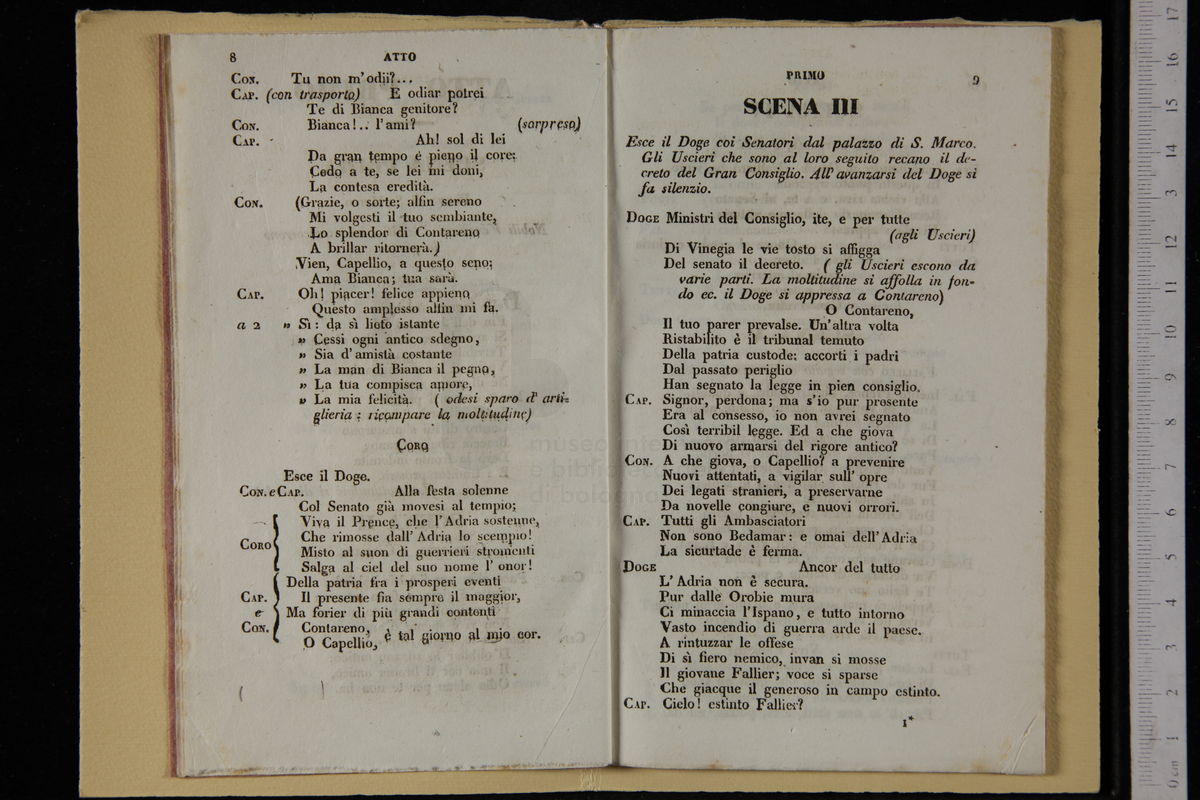 8 ATTO
CON. Tu non m'odii?...
CAP. (con trasporto) E odiar potrei
Te di Bianca genitore?
CON. Bianca!.. l'ami? (sorpreso)
CAP. Ah! sol di lei
Da gran tempo è pieno il core;
Cedo a te, se lei mi doni,
La contesa eredità.
CON. (Grazie, o sorte; alfin sereno
Mi volgesti il tuo sembiante,
Lo splendor di Contareno
A brillar ritornerà.)
Vien, Capellio, a questo seno;
Ama Bianca; tua sarà.
CAP. Oh! piacer! felice appieno
Questo amplesso alfin mi fa.
a 2 » Sì: da sì lieto istante
» Cessi ogni antico sdegno,
» Sia d'amistà costante
» La man di Bianca il pegno,
» La tua compisca amore,
» La mia felicità. ( odesi sparo d'arti-
glieria: ricompare la moltitudine)
CORO
Esce il Doge.
CON. e CAP. Alla festa solenne
Col Senato già movesi al tempio;
CORO Viva il Prence, che l'Adria sostenne,
Che rimosse dall'Adria lo scempio!
Misto al suon di guerrieri stromenti
Salga al ciel del suo nome l'onor!
CAP. e CON. Della patria fra i prosperi eventi
Il presente fia sempre il maggior,
Ma forier di più grandi contenti
Contareno,
O Capellio, è tal giorno al mio cor.
PRIMO 9
SCENA III
Esce il Doge coi Senatori dal palazzo di S. Marco.
Gli Uscieri che sono al loro seguito recano il de-
creto del Gran Consiglio. All'avanzarsi del Doge si
fa silenzio.
DOGE Ministri del Consiglio, ite, e per tutte
(agli Uscieri)
Di Vinegia le vie tosto si affigga
Del senato il decreto. ( gli Uscieri escono da
varie parti. La moltitudine si affolla in fon-
do ec. il Doge si appressa a Contareno)
O Contareno,
Il tuo parer prevalse. Un'altra volta
Ristabilito è il tribunal temuto
Della patria custode: accorti i padri
Dal passato periglio
Han segnato la legge in pien consiglio.
CAP. Signor, perdona; ma s'io pur presente
Era al consesso, io non avrei segnato
Così terribil legge. Ed a che giova
Di nuovo armarsi del rigore antico?
CON. A che giova, o Capellio? a prevenire
Nuovi attentati, a vigilar sull'opre
Dei legati stranieri, a preservarne
Da novelle congiure, e nuovi orrori.
CAP. Tutti gli Ambasciatori
Non sono Bedamar: e omai dell'Adria
La sicurtade è ferma.
DOGE Ancor del tutto
L'Adria non è secura.
Pur dalle Orobie mura
Ci minaccia l'Ispano, e tutto intorno
Vasto incendio di guerra arde il paese.
A rintuzzar le offese
Di sì fiero nemico, invan si mosse
Il giovane Fallier; voce si sparse
Che giacque il generoso in campo estinto.
CAP. Cielo! estinto Fallier?
1*